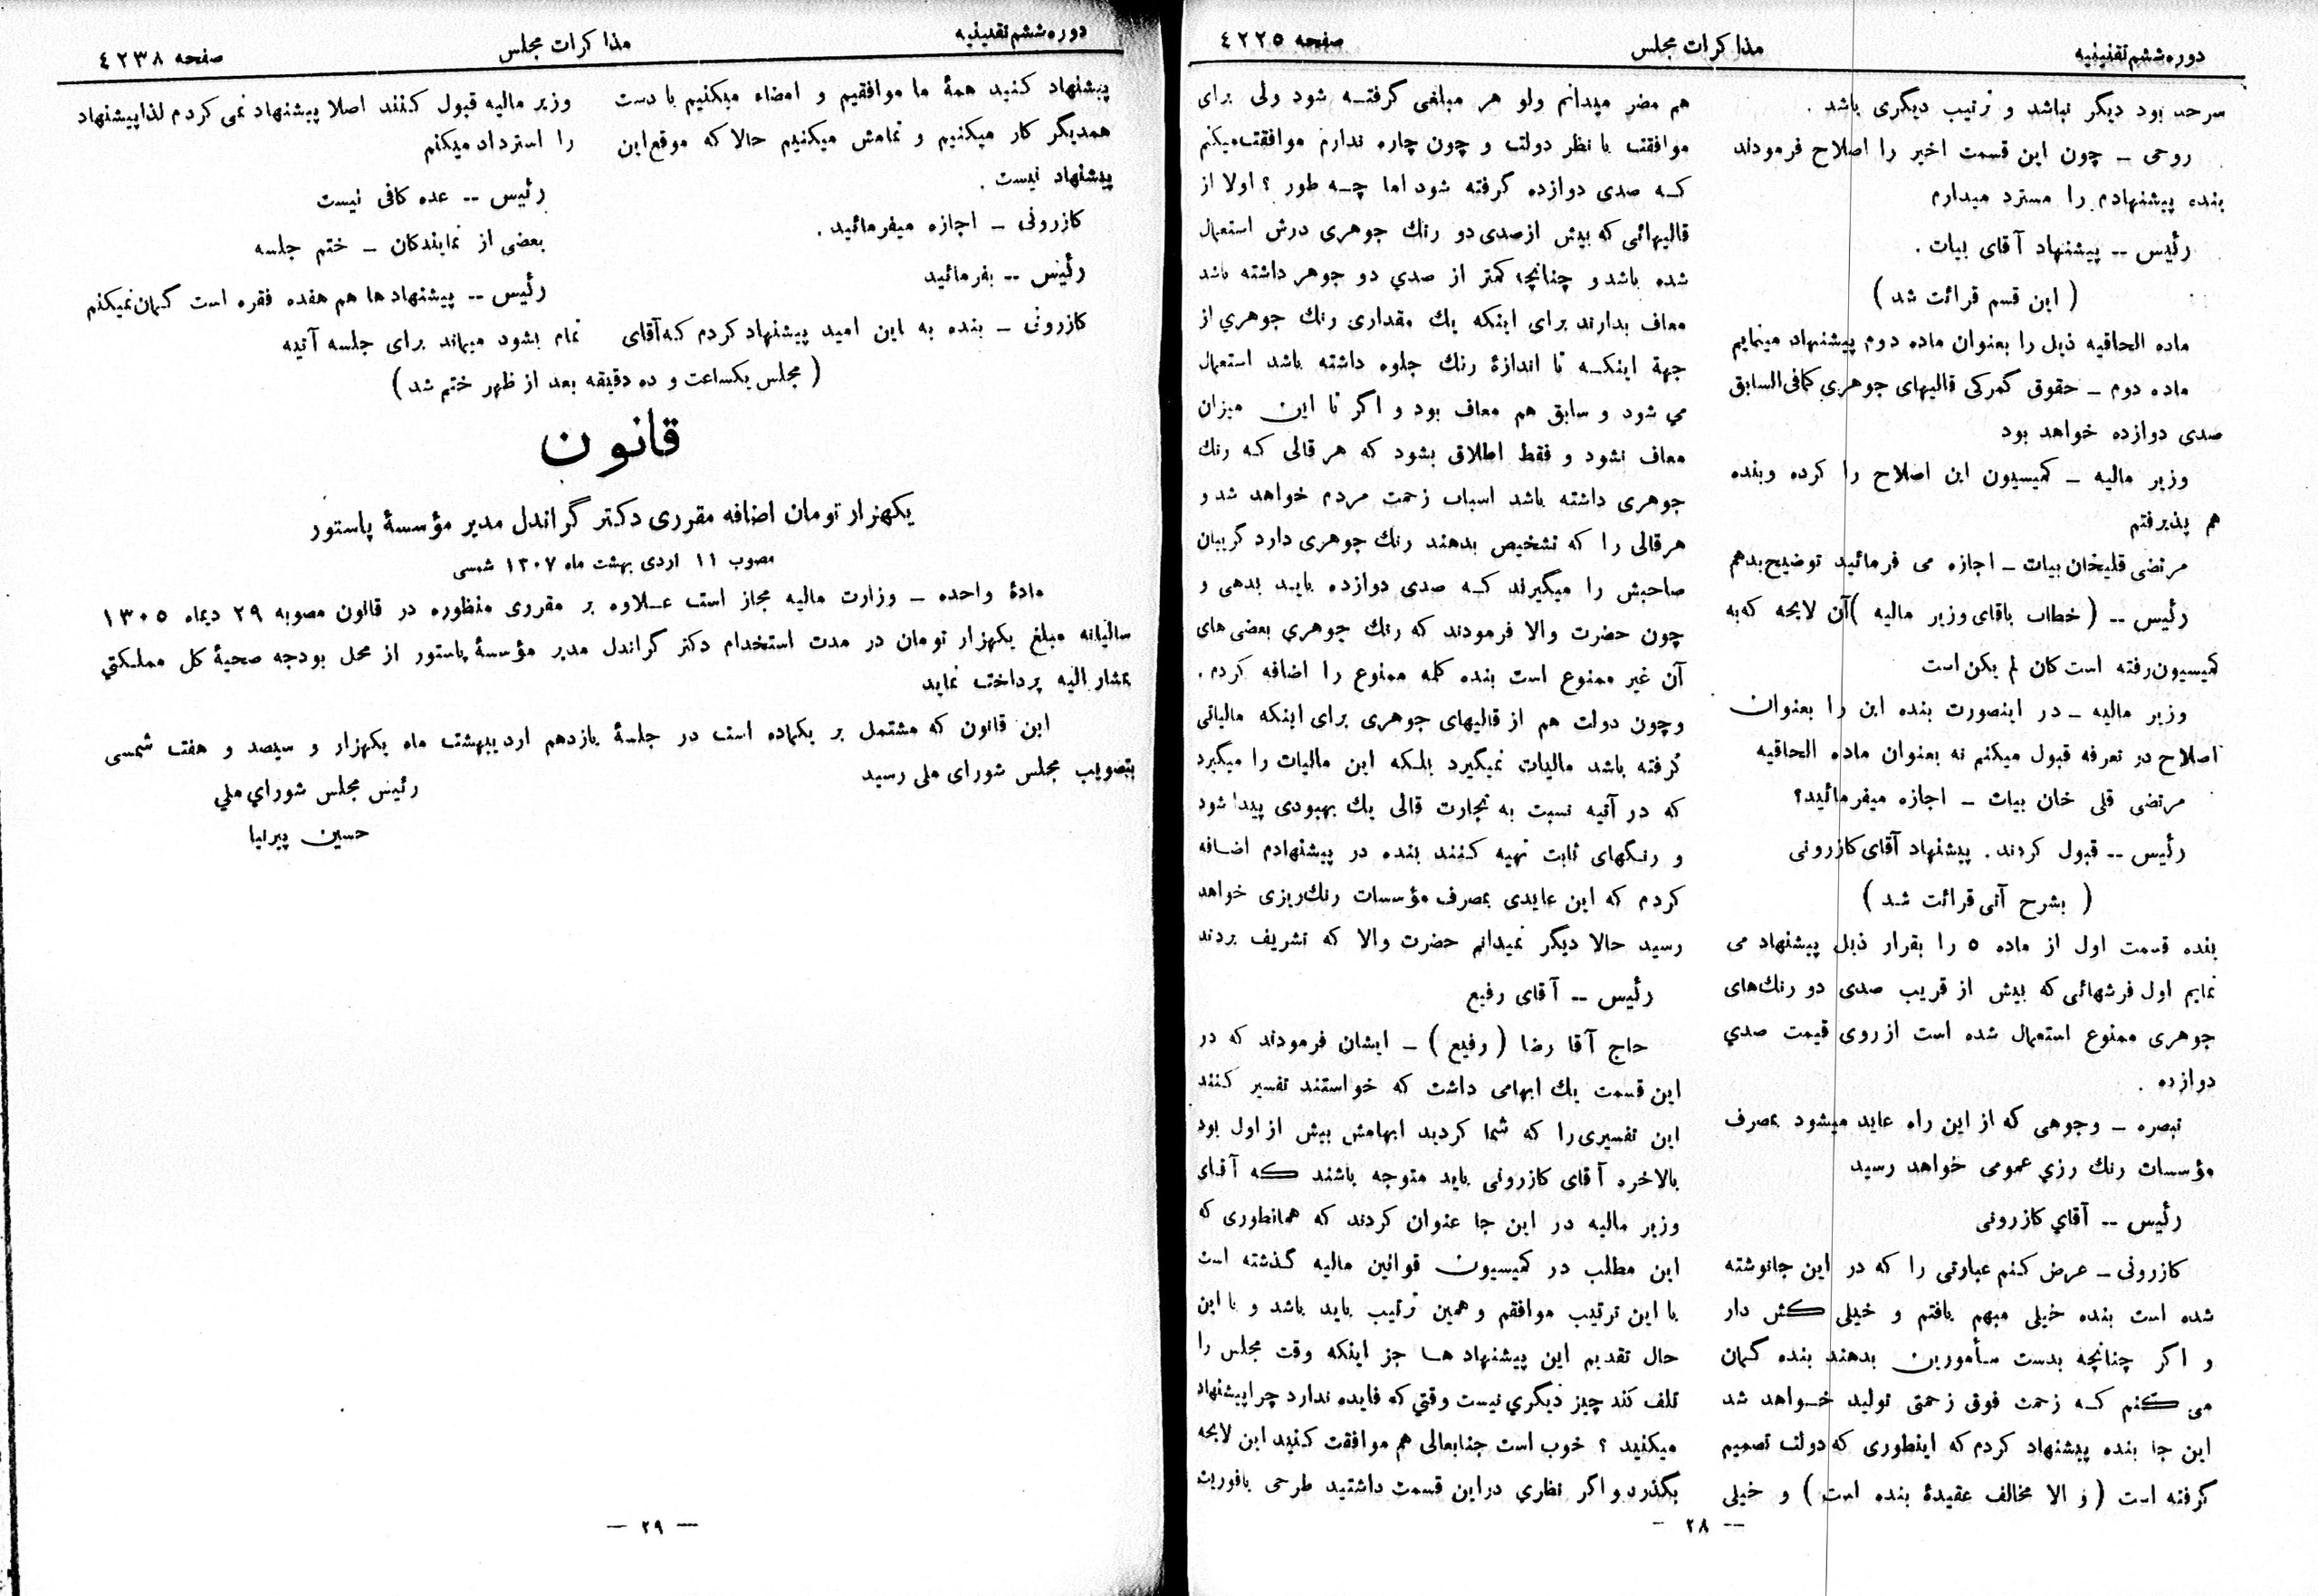 دوره ششم تقنینیه
مذاکرات مجلس
صفحه ٤٢٢٥
سرحد بود دیگر نباشد و ترتیب دیگری باشد .
روحی ــ چون این قسمت اخیر را اصلاح فرمودند
بنده پیشنهادم را مسترد میدارم
رئیس -- پیشنهاد آقای بیات .
( این قسم قرائت شد )
ماده الحاقیه ذیل را بعنوان ماده دوم پیشنهاد مینمایم
ماده دوم ــ حقوق گمرکی قالیهای جوهری کمافی‌السابق
صدی دوازده خواهد بود
وزیر مالیه ــ کمیسیون این اصلاح را کرده و بنده
هم پذیرفتم
مرتضی قلیخان بیات ــ اجازه می فرمائید توضیح بدهم
رئیس -- ( خطاب باقای وزیر مالیه ) آن لایحه که به
کمیسیون رفته است کان لم یکن است
وزیر مالیه ــ در اینصورت بنده این را بعنوان
اصلاح در تعرفه قبول میکنم نه بعنوان ماده الحاقیه
مرتضی قلی خان بیات ــ اجازه میفرمائید؟
رئیس -- قبول کردند . پیشنهاد آقای کازرونی
( بشرح آتی قرائت شد )
بنده قسمت اول از ماده ٥ را بقرار ذیل پیشنهاد می
نمایم اول فرشهائی که بیش از قریب صدی دو رنك‌های
جوهری ممنوع استعمال شده است از روی قیمت صدي
دوازده .
تبصره ــ وجوهی که از این راه عاید میشود بمصرف
مؤسسات رنك رزي عمومی خواهد رسید
رئیس -- آقاي کازرونی
کازرونی ــ عرض کنم عبارتی را که در این جا نوشته
شده است بنده خیلی مبهم یافتم و خیلی کش دار
و اگر چنانچه بدست مأمورین بدهند بنده گمان
می کنم که زحمت فوق زحمتی تولید خواهد شد
این جا بنده پیشنهاد کردم که اینطوری که دولت تصمیم
گرفته است ( و الا مخالف عقیدهٔ بنده است ) و خیلی
هم مضر میدانم ولو هر مبلغی گرفته شود ولی برای
موافقت با نظر دولت و چون چاره ندارم موافقت میکنم
که صدی دوازده گرفته شود اما چه طور ؟ اولا از
قالیهائی که بیش از صدی دو رنك جوهری درش استعمال
شده باشد و چنانچه کمتر از صدي دو جوهر داشته باشد
معاف بدارند برای اینکه یك مقداری رنك جوهري از
جهة اینکه تا اندازهٔ رنك جلوه داشته باشد استعمال
می شود و سابق هم معاف بود و اگر تا این میزان
معاف نشود و فقط اطلاق بشود که هر قالی که رنك
جوهری داشته باشد اسباب زحمت مردم خواهد شد و
هر قالی را که تشخیص بدهند رنك جوهری دارد گریبان
صاحبش را میگیرند که صدی دوازده باید بدهی و
چون حضرت والا فرمودند که رنك جوهري بعضی های
آن غیر ممنوع است بنده کلمه ممنوع را اضافه کردم .
و چون دولت هم از قالیهای جوهری برای اینکه مالیاتی
گرفته باشد مالیات نمیگیرد بلکه این مالیات را میگیرد
که در آتیه نسبت به تجارت قالی یك بهبودی پیدا شود
و رنگهای ثابت تهیه کنند بنده در پیشنهادم اضافه
کردم که این عایدی بمصرف مؤسسات رنك‌ریزی خواهد
رسید حالا دیگر نمیدانم حضرت والا که تشریف بردند
رئیس -- آقای رفیع
حاج آقا رضا ( رفیع ) ــ ایشان فرمودند که در
این قسمت یك ابهامی داشت که خواستند تفسیر کنند
این تفسیری را که شما کردید ابهامش بیش از اول بود
بالاخره آقای کازرونی باید متوجه باشند که آقای
وزیر مالیه در این جا عنوان کردند که همانطوری که
این مطلب در کمیسیون قوانین مالیه گذشته است
با این ترتیب موافقم و همین ترتیب باید باشد و با این
حال تقدیم این پیشنهاد ها جز اینکه وقت مجلس را
تلف کند چیز دیگري نیست وقتي که فایده ندارد چرا پیشنهاد
میکنید ؟ خوب است جنابعالی هم موافقت کنید این لایحه
بگذرد و اگر نظاري در این قسمت داشتید طرحی بافوریت
— ٢٨ -
دوره ششم تقنینیه
مذاکرات مجلس
صفحه ٤٢٣٨
پیشنهاد کنید همهٔ ما موافقیم و امضاء میکنیم با دست
همدیگر کار میکنیم و تمامش میکنیم حالا که موقع این
پیشنهاد نیست .
کازرونی ــ اجازه میفرمائید .
رئیس -- بفرمائید
کازرونی ــ بنده به این امید پیشنهاد کردم که آقای
وزیر مالیه قبول کنند اصلا پیشنهاد نمی کردم لذا پیشنهاد
را استرداد میکنم
رئیس -- عده کافی نیست
بعضی از نمایندگان ــ ختم جلسه
رئیس -- پیشنهاد ها هم هفده فقره است گمان نمیکنم
تمام بشود میماند برای جلسه آتیه
( مجلس یکساعت و ده دقیقه بعد از ظهر ختم شد )
قانون
یکهزار تومان اضافه مقرری دکتر گراندل مدیر مؤسسهٔ پاستور
مصوب ١١ اردی بهشت ماه ١٣٠٧ شمسی
مادهٔ واحده ــ وزارت مالیه مجاز است علاوه بر مقرری منظوره در قانون مصوبه ٢٩ دیماه ١٣٠٥
سالیانه مبلغ یکهزار تومان در مدت استخدام دکتر گراندل مدیر مؤسسهٔ پاستور از محل بودجه صحیهٔ کل مملکتي
بمشار الیه پرداخت نماید
این قانون که مشتمل بر یکماده است در جلسهٔ یازدهم اردیبهشت ماه یکهزار و سیصد و هفت شمسی
بتصویب مجلس شورای ملی رسید
رئیس مجلس شوراي ملي
حسین پیرنیا
— ٢٩ —